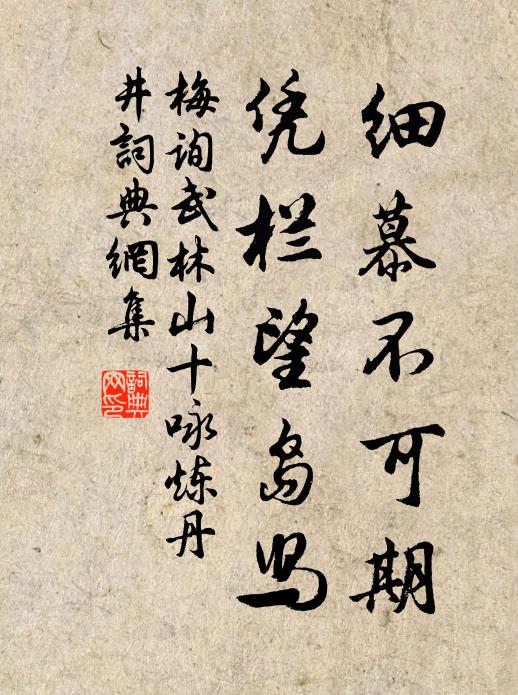 细慕不可期
凭栏望岛舄
梅询武林山十咏炼丹
井詞典網集
詞典
网印